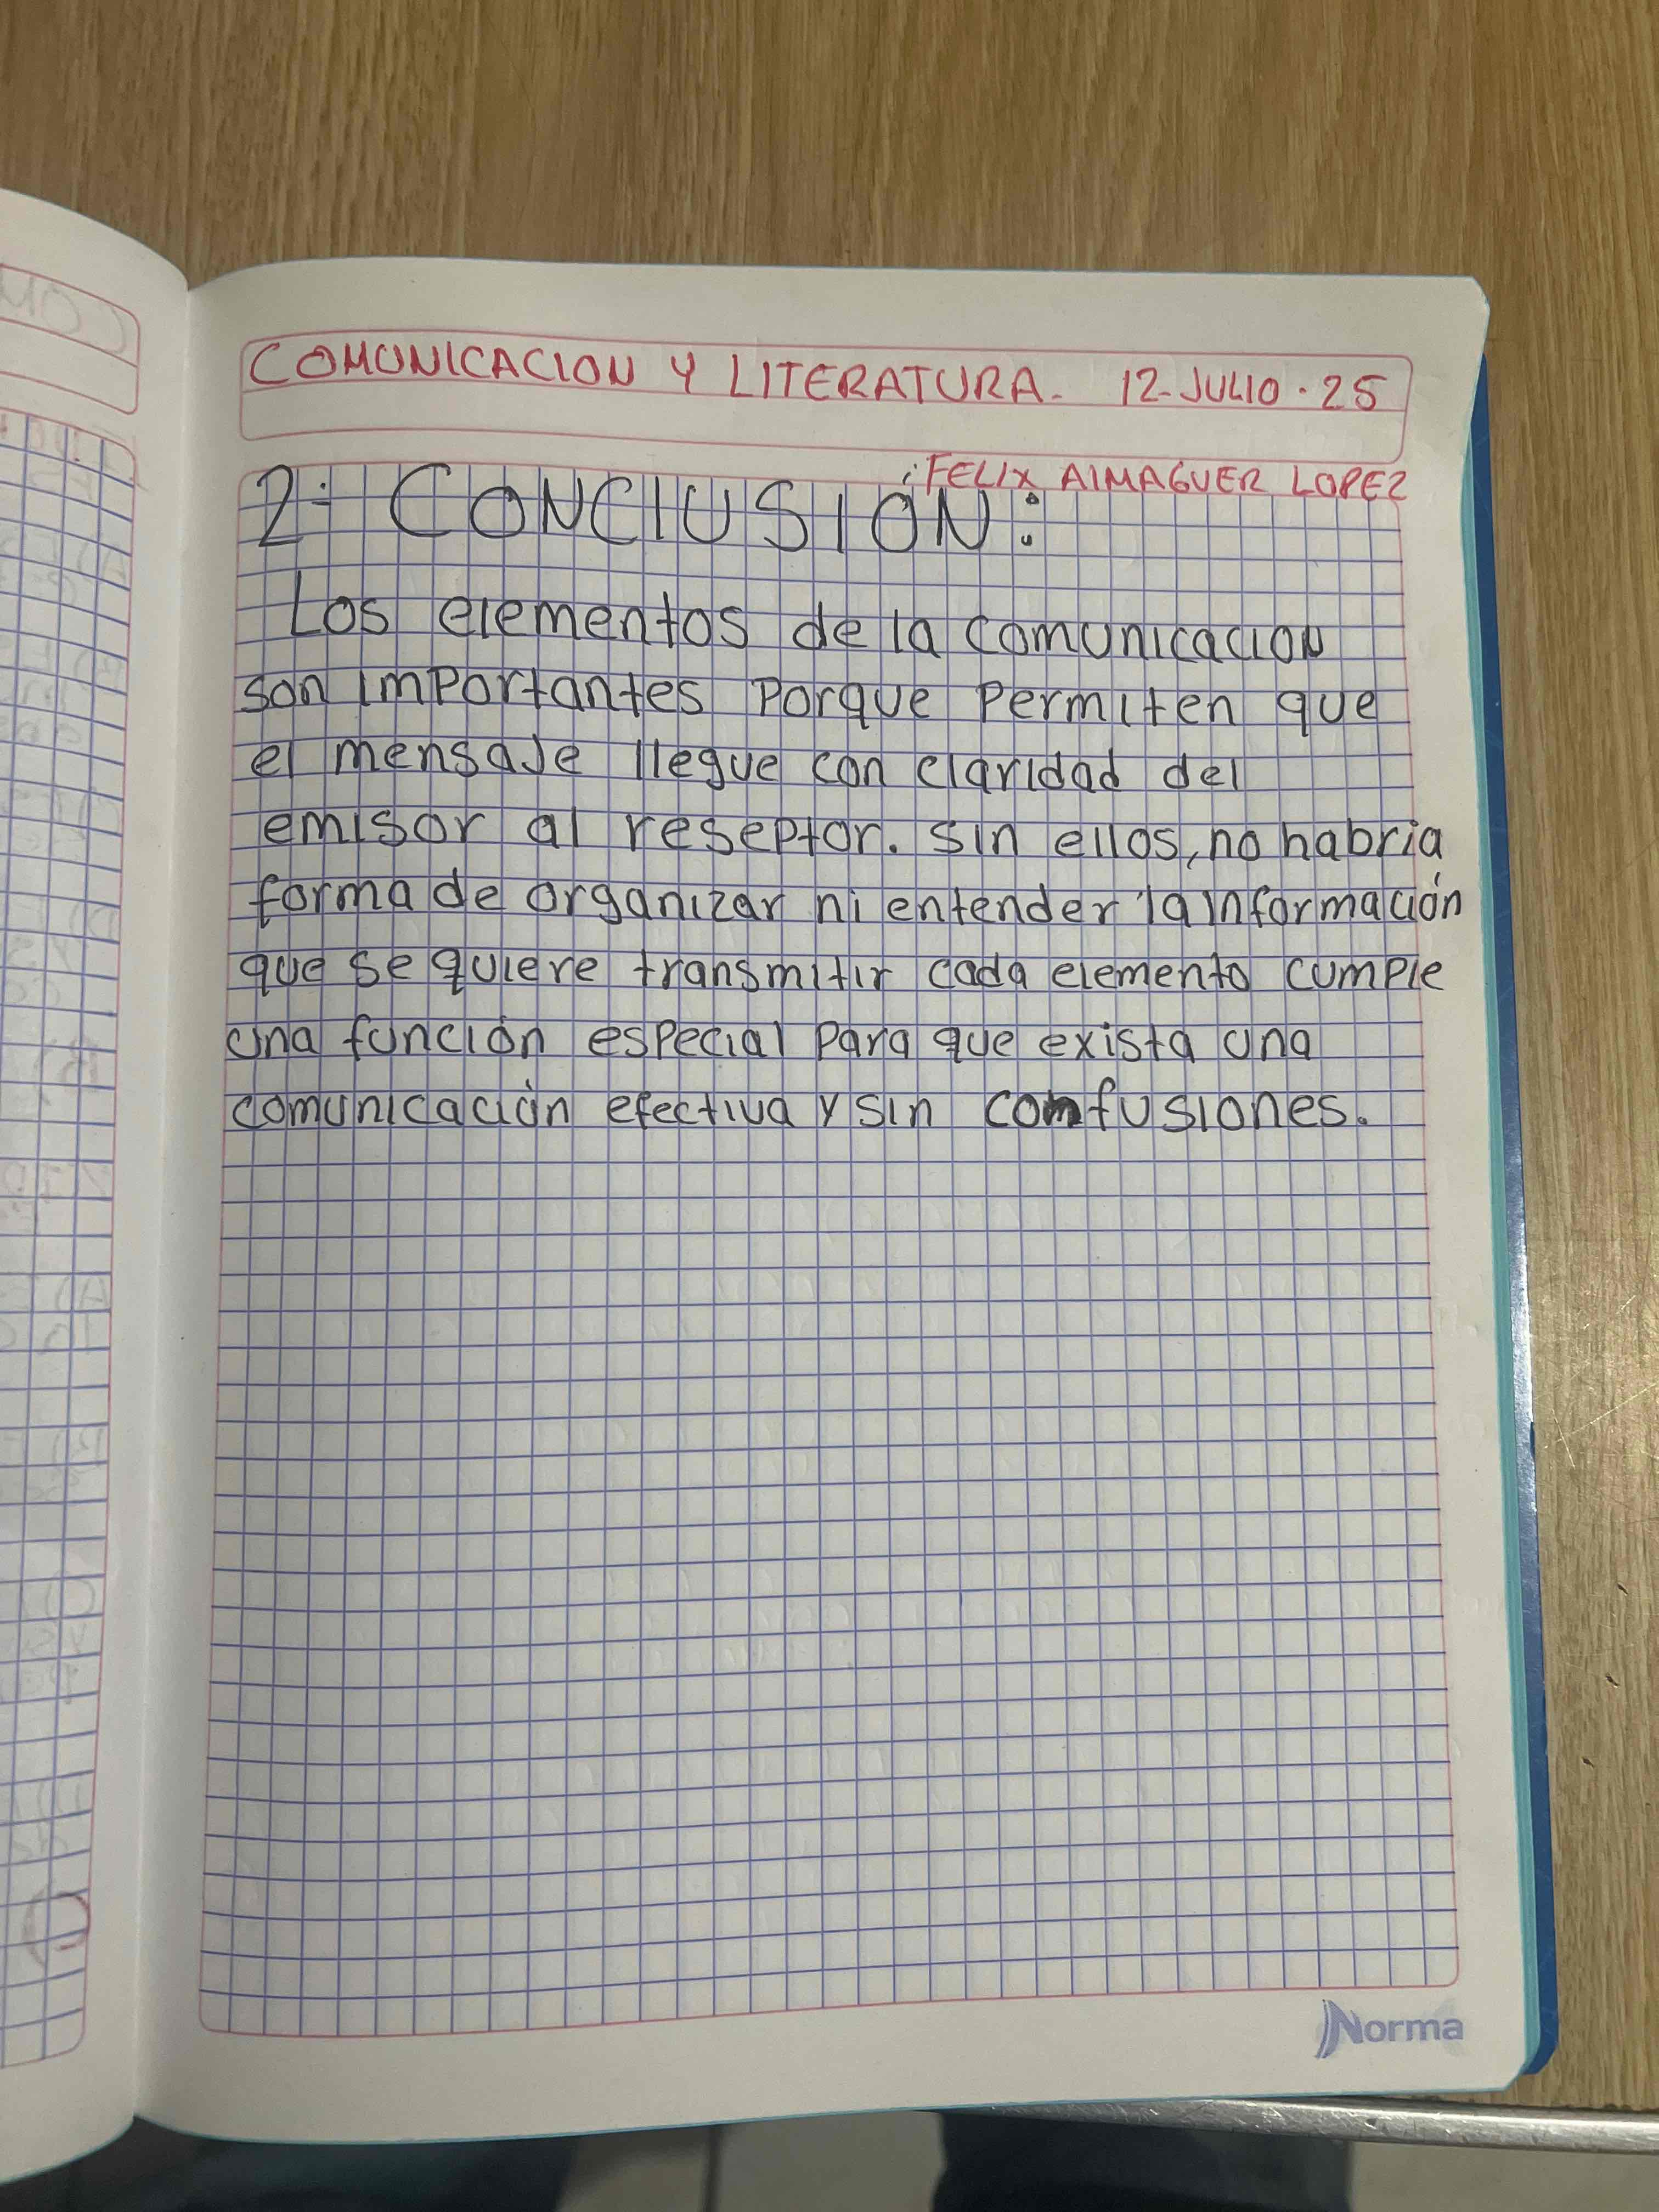 COMUNICACION Y LITERATURA. 12-JULIO.25
FELIX AlMAGUER LOPEZ
2- CONClUSIÓN:
Los elementos de la comunicacion
son importantes porque permiten que
el mensaje llegue con claridad del
emisor al reseptor. sin ellos, no habria
forma de organizar ni entender la información
que se quiere transmitir cada elemento cumple
una función especial para que exista una
comunicación efectiva y sin confusiones.
Norma